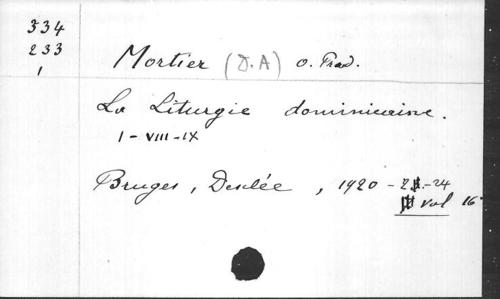 334
233
1
Mortier (D. A) O. Praed.
La Liturgie dominicaine.
I - VIII - IX
Bruges, Desclée, 1920 - 24
vol 16°